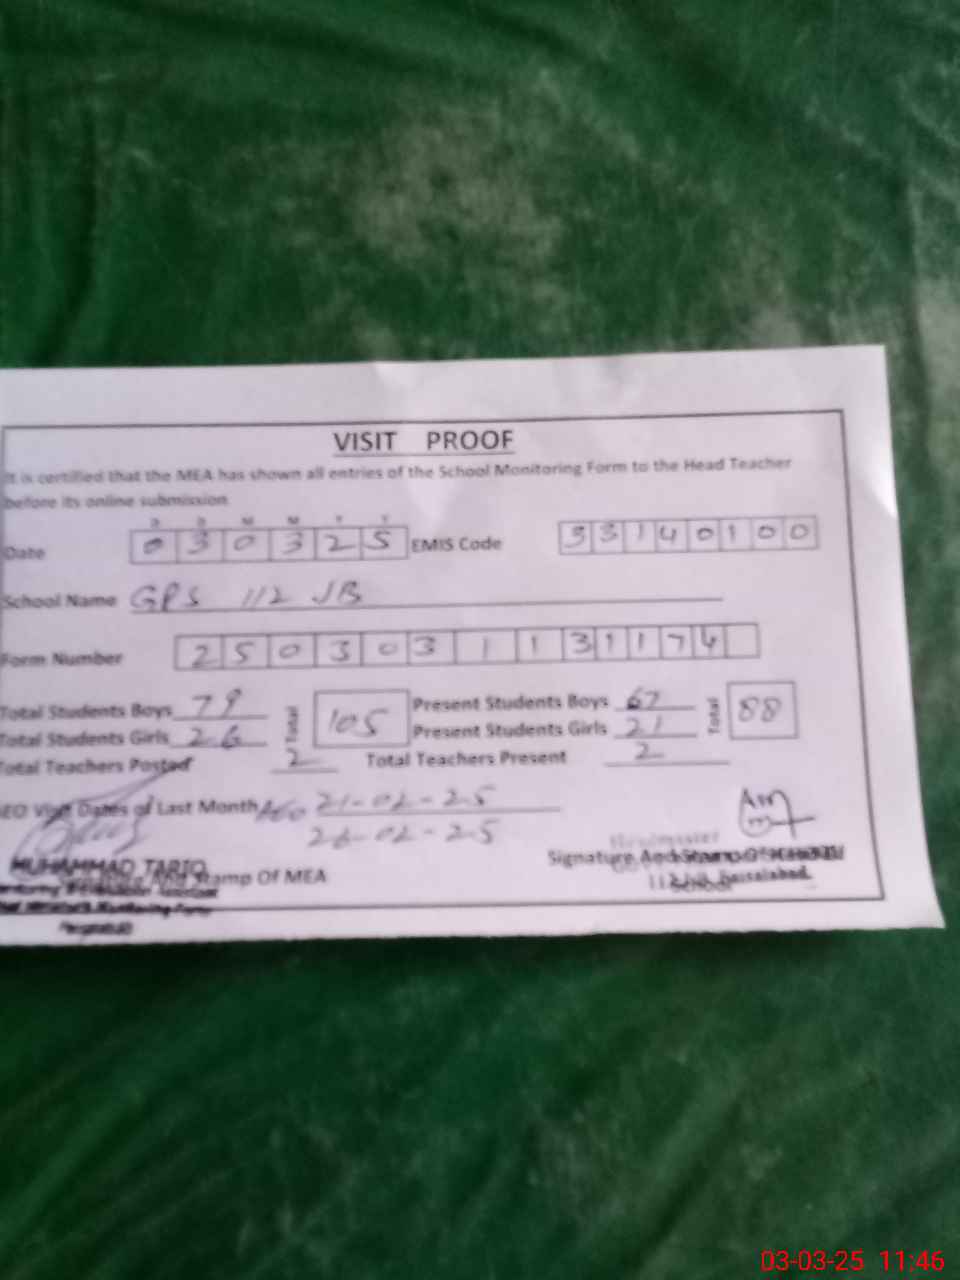 VISIT PROOF
It is certified that the MEA has shown all entries of the School Monitoring Form to the Head Teacher
before its online submission
D D M M Y Y
Date 0 3 0 3 2 5 EMIS Code 3 3 1 4 0 1 0 0
School Name GPS 112 JB
Form Number 2 5 0 3 0 3 1 1 3 1 1 7 4
Total Students Boys 79 Total 105 Present Students Boys 67 Total 88
Total Students Girls 26 Present Students Girls 21
Total Teachers Posted 2 Total Teachers Present 2
Visit Dates of Last Month 21-02-25
26-02-25
MUHAMMAD TARIQ
Stamp Of MEA
Signature And Stamp Of
School
Faisalabad
03-03-25 11:46